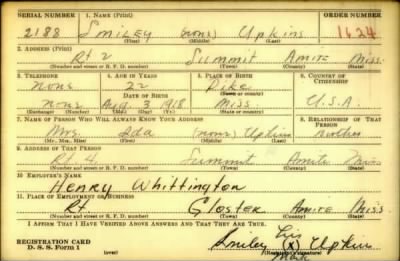 SERIAL NUMBER 1. NAME (Print) ORDER NUMBER
2188 SMILEY (none) Upkins 1624
(First) (Middle) (Last)
2. ADDRESS (Print)
Rt 2 Summit Amite Miss.
(Number and street or R. F. D. number) (Town) (County) (State)
3. TELEPHONE 4. AGE IN YEARS 5. PLACE OF BIRTH 6. COUNTRY OF CITIZENSHIP
None 22 Pike
DATE OF BIRTH (Town or county)
none Aug. 3, 1918 Miss U.S.A.
7. NAME OF PERSON WHO WILL ALWAYS KNOW YOUR ADDRESS 8. RELATIONSHIP OF THAT PERSON
Mrs. Ida (none) Upkins Mother
(Mr., Mrs., Miss) (First) (Middle) (Last)
9. ADDRESS OF THAT PERSON
Rt. 4 Summit Amite Miss
(Number and street or R. F. D. number) (Town) (County) (State)
10. EMPLOYER'S NAME
Henry Whittington
11. PLACE OF EMPLOYMENT OR BUSINESS
Rt. Gloster Amite Miss.
(Number and street or R. F. D. number) (Town) (County) (State)
I AFFIRM THAT I HAVE VERIFIED ABOVE ANSWERS AND THAT THEY ARE TRUE.
REGISTRATION CARD
D. S. S. Form 1
His
Smiley (X) Upkins
(Registrant's signature)
Mark